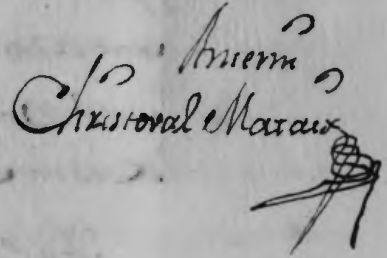 Antemi
Christoval Maraix